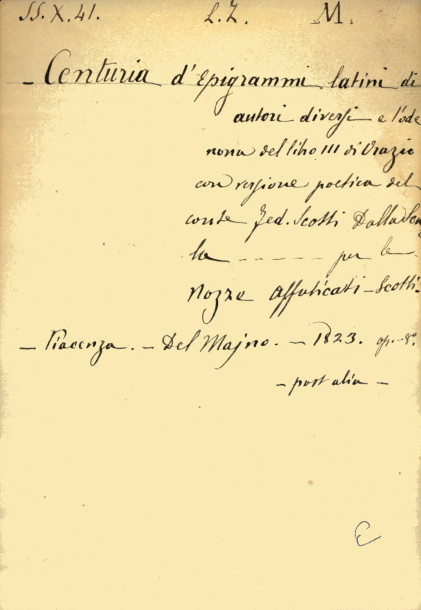 SS. X. 41. L. Z. M.
- Centuria d'Epigrammi latini di
autori diversi e l'ode
nona del libro III di Orazio
con versione poetica del
conte Fed. Scotti Dalla Scu
la - - - - - per le
Nozze Affaticati - Scotti.
- Piacenza. - Del Majno. - 1823. op. - 8.°
- post alia -
C